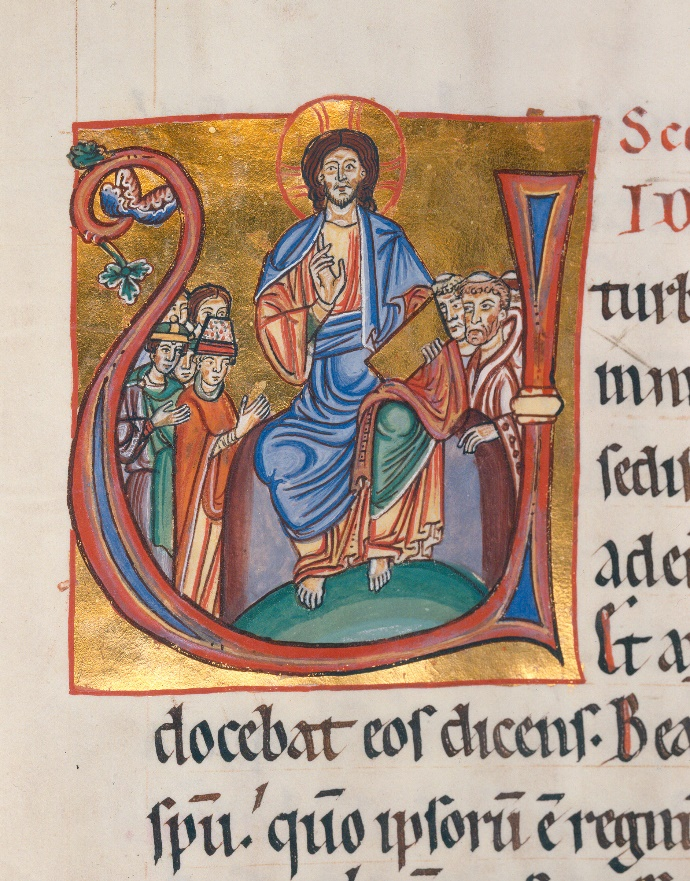 Sec
ID
turb
mm
ſediſ
ad e
Et a
docebat eoſ dicenſ. Bea
ſpū. quō ipſorū ē regn